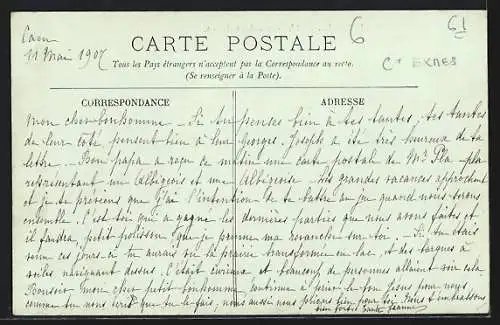 Caen
11 Mai 1907
6
61
Ct EXMES
CARTE POSTALE
Tous les Pays étrangers n'acceptent pas la Correspondance au recto.
(Se renseigner à la Poste).
CORRESPONDANCE
ADRESSE
Mon cher bonhomme _ Si tu penses bien à tes tantes, tes tantes
de leur côté pensent bien à leur Georges. Joseph a été très heureux de ta
lettre _ Bon papa a reçu ce matin une carte postale de Mr Pla
représentant un Albigeois et une Albigeoise _ Les grandes vacances approchent
et je te préviens que j'ai l'intention de te battre au jeu quand nous serons
ensemble. C'est toi qui a gagné les dernières parties que nous avons faites et
il faudra, petit polisson, que je prenne ma revanche sur toi _ Si tu étais
venu ces jours-ci tu aurais vu la prairie transformée en lac, et des barques à
voiles naviguant dessus. C'était curieux et beaucoup de personnes allaient voir cela
Bonsoir mon cher petit bonhomme continue à prier le bon Jésus pour nous,
comme tu nous écris que tu le fais, nous aussi nous prions bien pour toi. Papa t'embrassons
bien fort Tante Jeanne